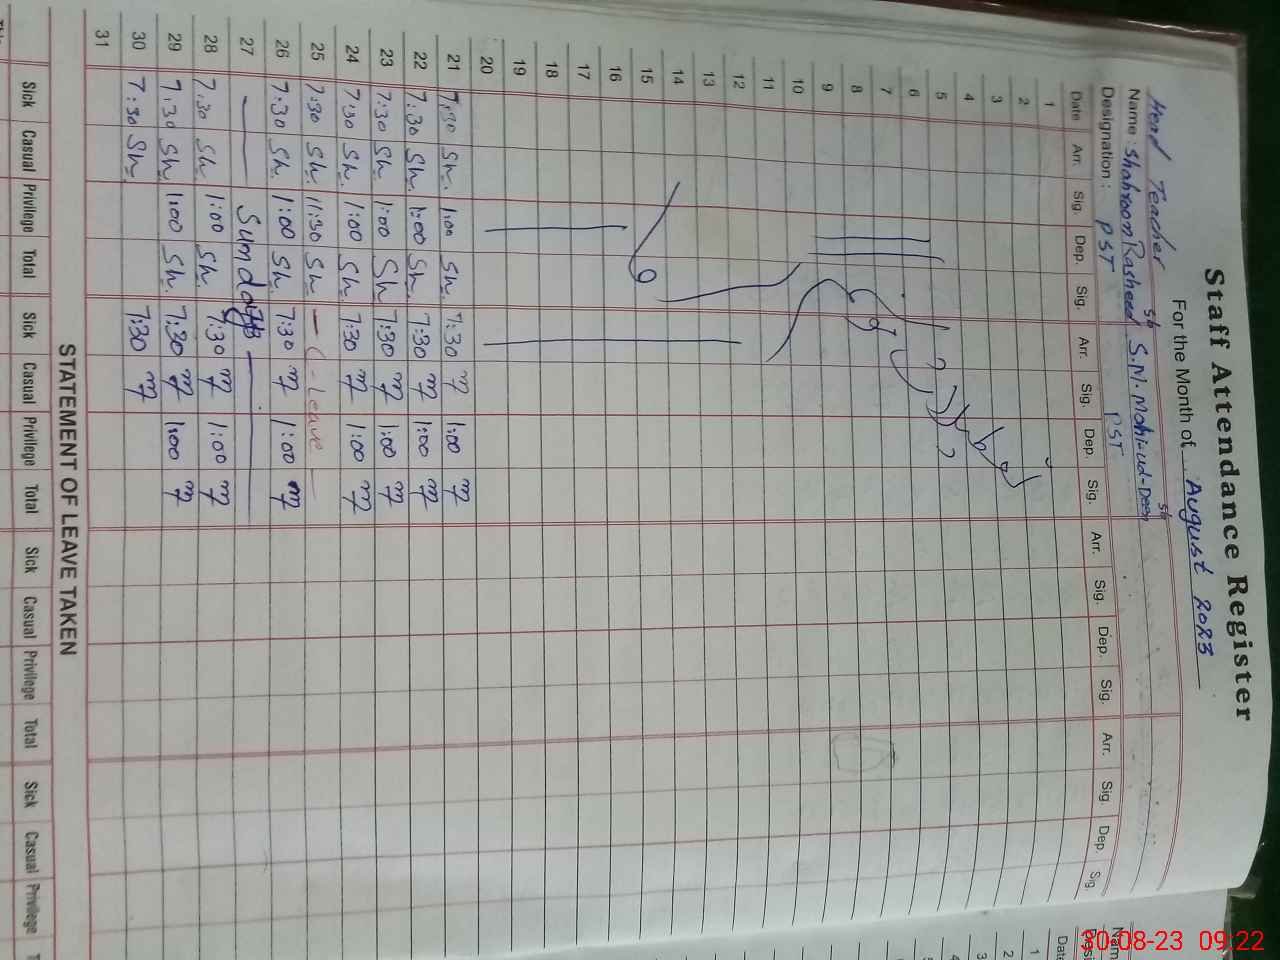 Staff Attendance Register
For the Month of August 2023
Head Teacher
Name: Shahroom Rasheed Sb S.M. Mohi-ud-Deen Sb
Designation: PST PST
Date Arr. Sig. Dep. Sig. Arr. Sig. Dep. Sig. Arr. Sig. Dep. Sig. Arr. Sig. Dep. Sig.
1
2
3
4
5
6
7
8
9
10
11
12
13
14
15
16
17
18
19
20
21 7:30 Sh. 1:00 Sh. 7:30 1:00
22 7:30 Sh. 1:00 Sh. 7:30 1:00
23 7:30 Sh. 1:00 Sh 7:30 1:00
24 7:30 Sh. 1:00 Sh 7:30 1:00
25 7:30 Sh. 11:30 Sh. — C-Leave —
26 7:30 Sh. 1:00 Sh. 7:30 1:00
27 — Sunday —
28 7:30 Sh. 1:00 Sh 7:30 1:00
29 7:30 Sh. 1:00 Sh. 7:30 1:00
30 7:30 Sh. 7:30
31
STATEMENT OF LEAVE TAKEN
Sick Casual Privilege Total Sick Casual Privilege Total Sick Casual Privilege Total Sick Casual Privilege
Date
1
2
3
4
30-08-23 09:22